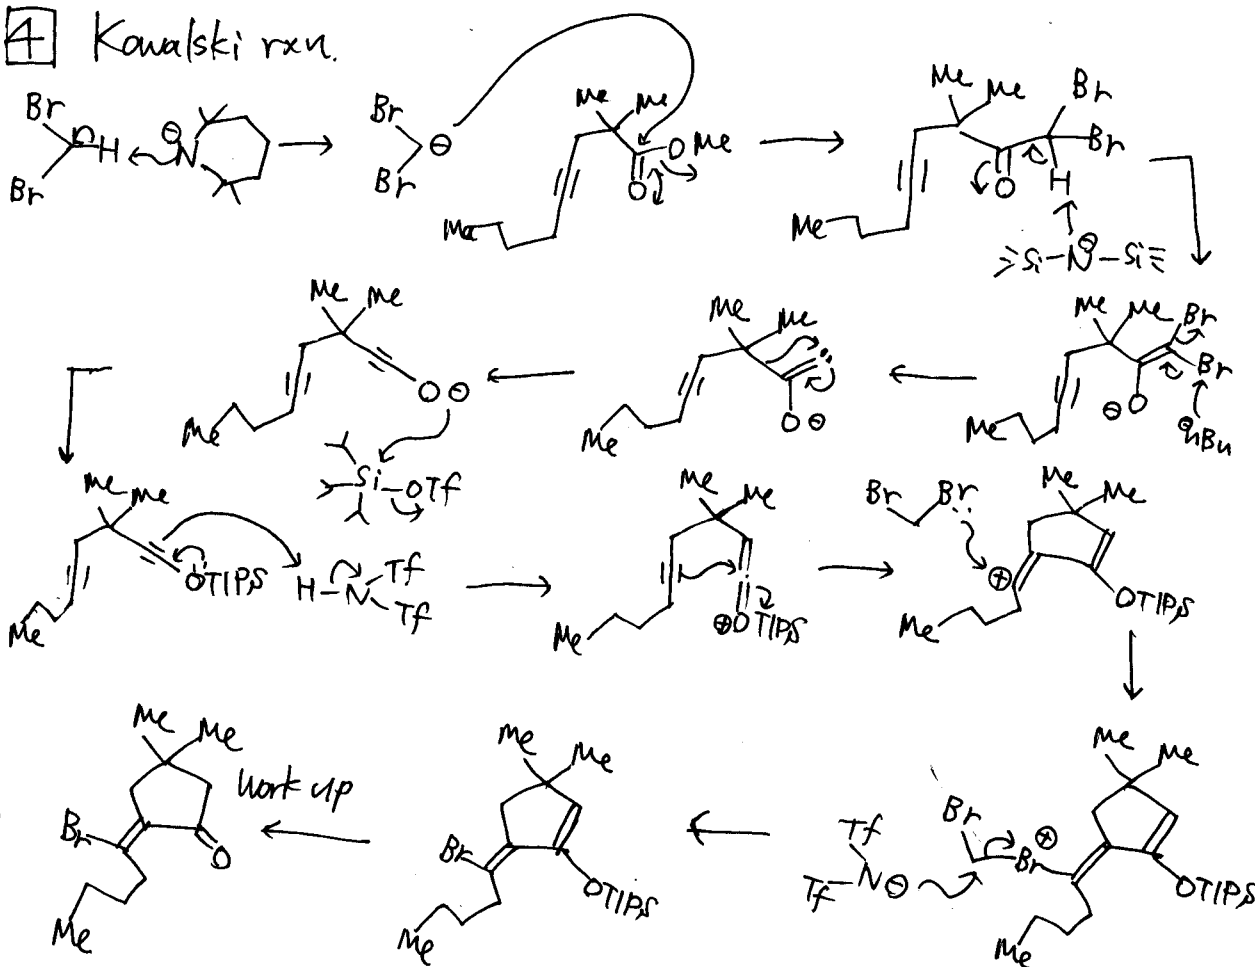 4 Kowalski rxn.
Br Br H ⊖ N
Br Br ⊖
Me Me O Me O Me
Me Me Br Br O H Me
Si-N-Si ⊖
Me Me Br Br O ⊖ Me ⊖nBu
Me Me O ⊖ Me
Me Me O ⊖ Me
Si-OTf
Me Me OTIPS Me
H-N Tf Tf
Me Me ⊕OTIPS Me
Br Br
Me Me ⊕ OTIPS Me
Me Me Br Br ⊕ OTIPS Me
Tf Tf-N⊖
Me Me Br OTIPS Me
Work up
Me Me Br O Me